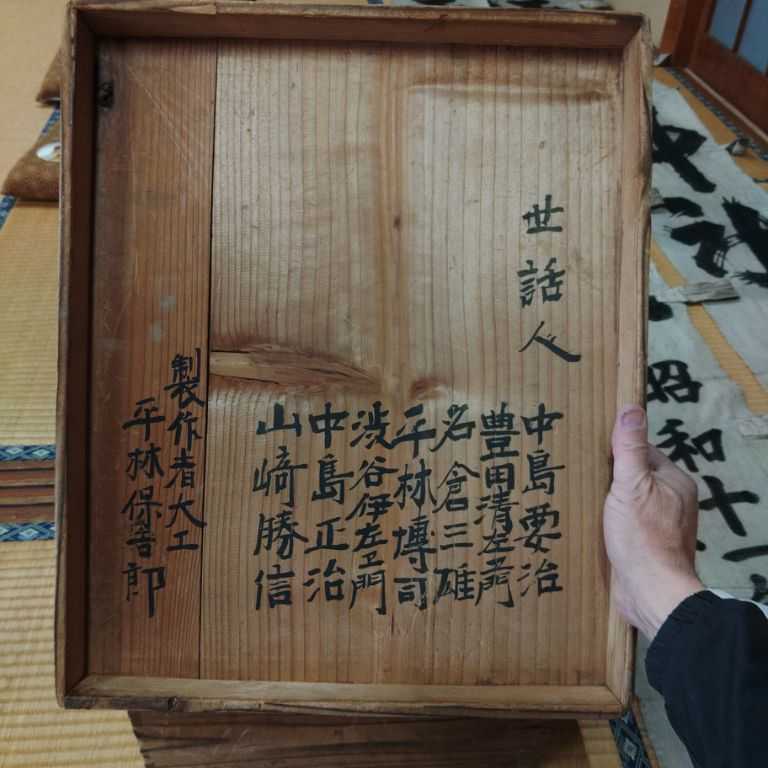 世話人
中島要治
豊田清左ェ門
名倉三雄
平林博司
渋谷伊左ェ門
中島正治
山﨑勝信
製作者大工
平林保吾郎
昭和十一